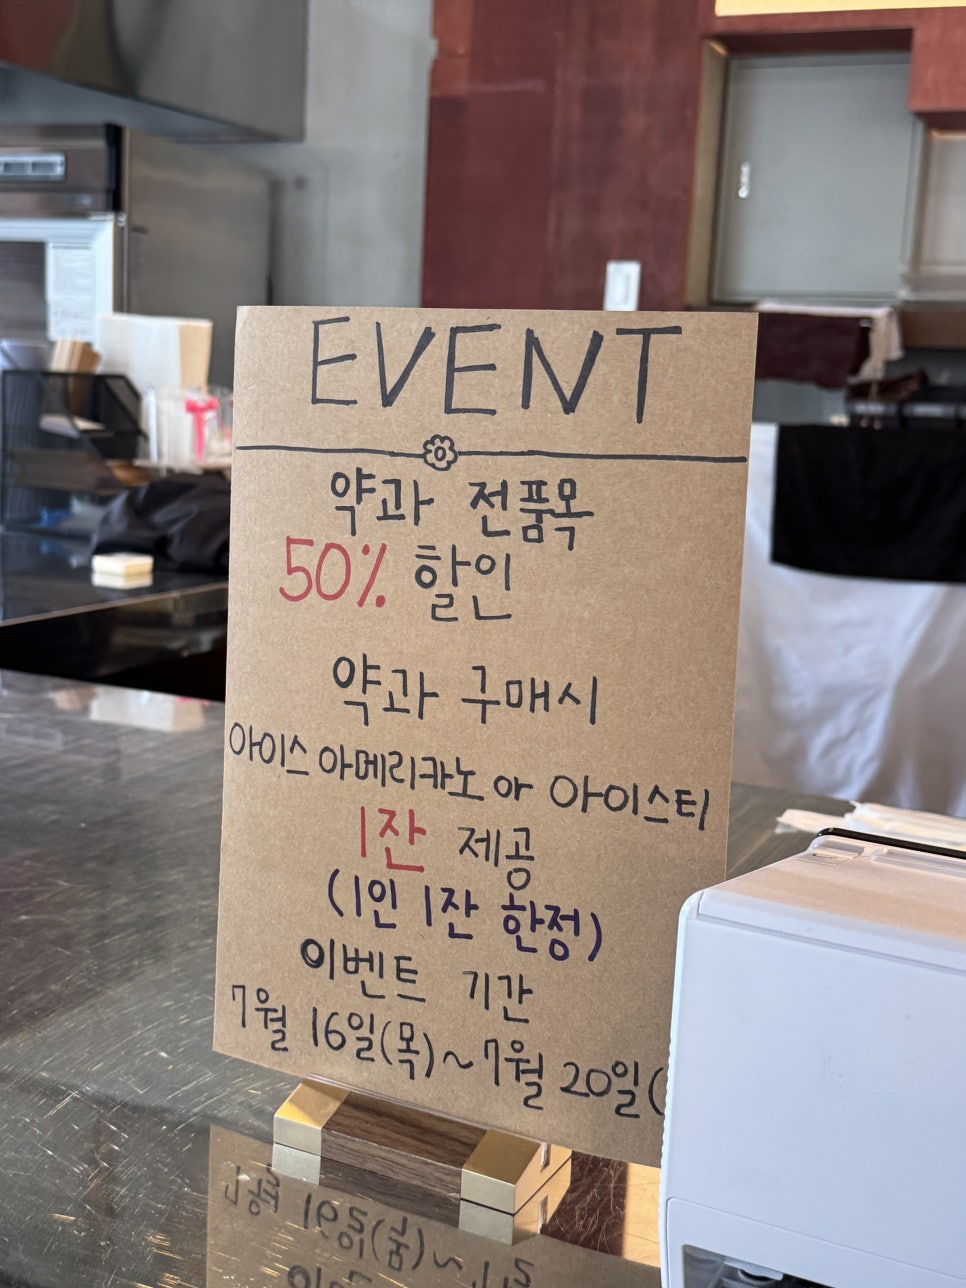 EVENT
약과 전품목
50% 할인
약과 구매시
아이스 아메리카노 or 아이스티
1잔 제공
(1인 1잔 한정)
이벤트 기간
7월 16일(목)~7월 20일(